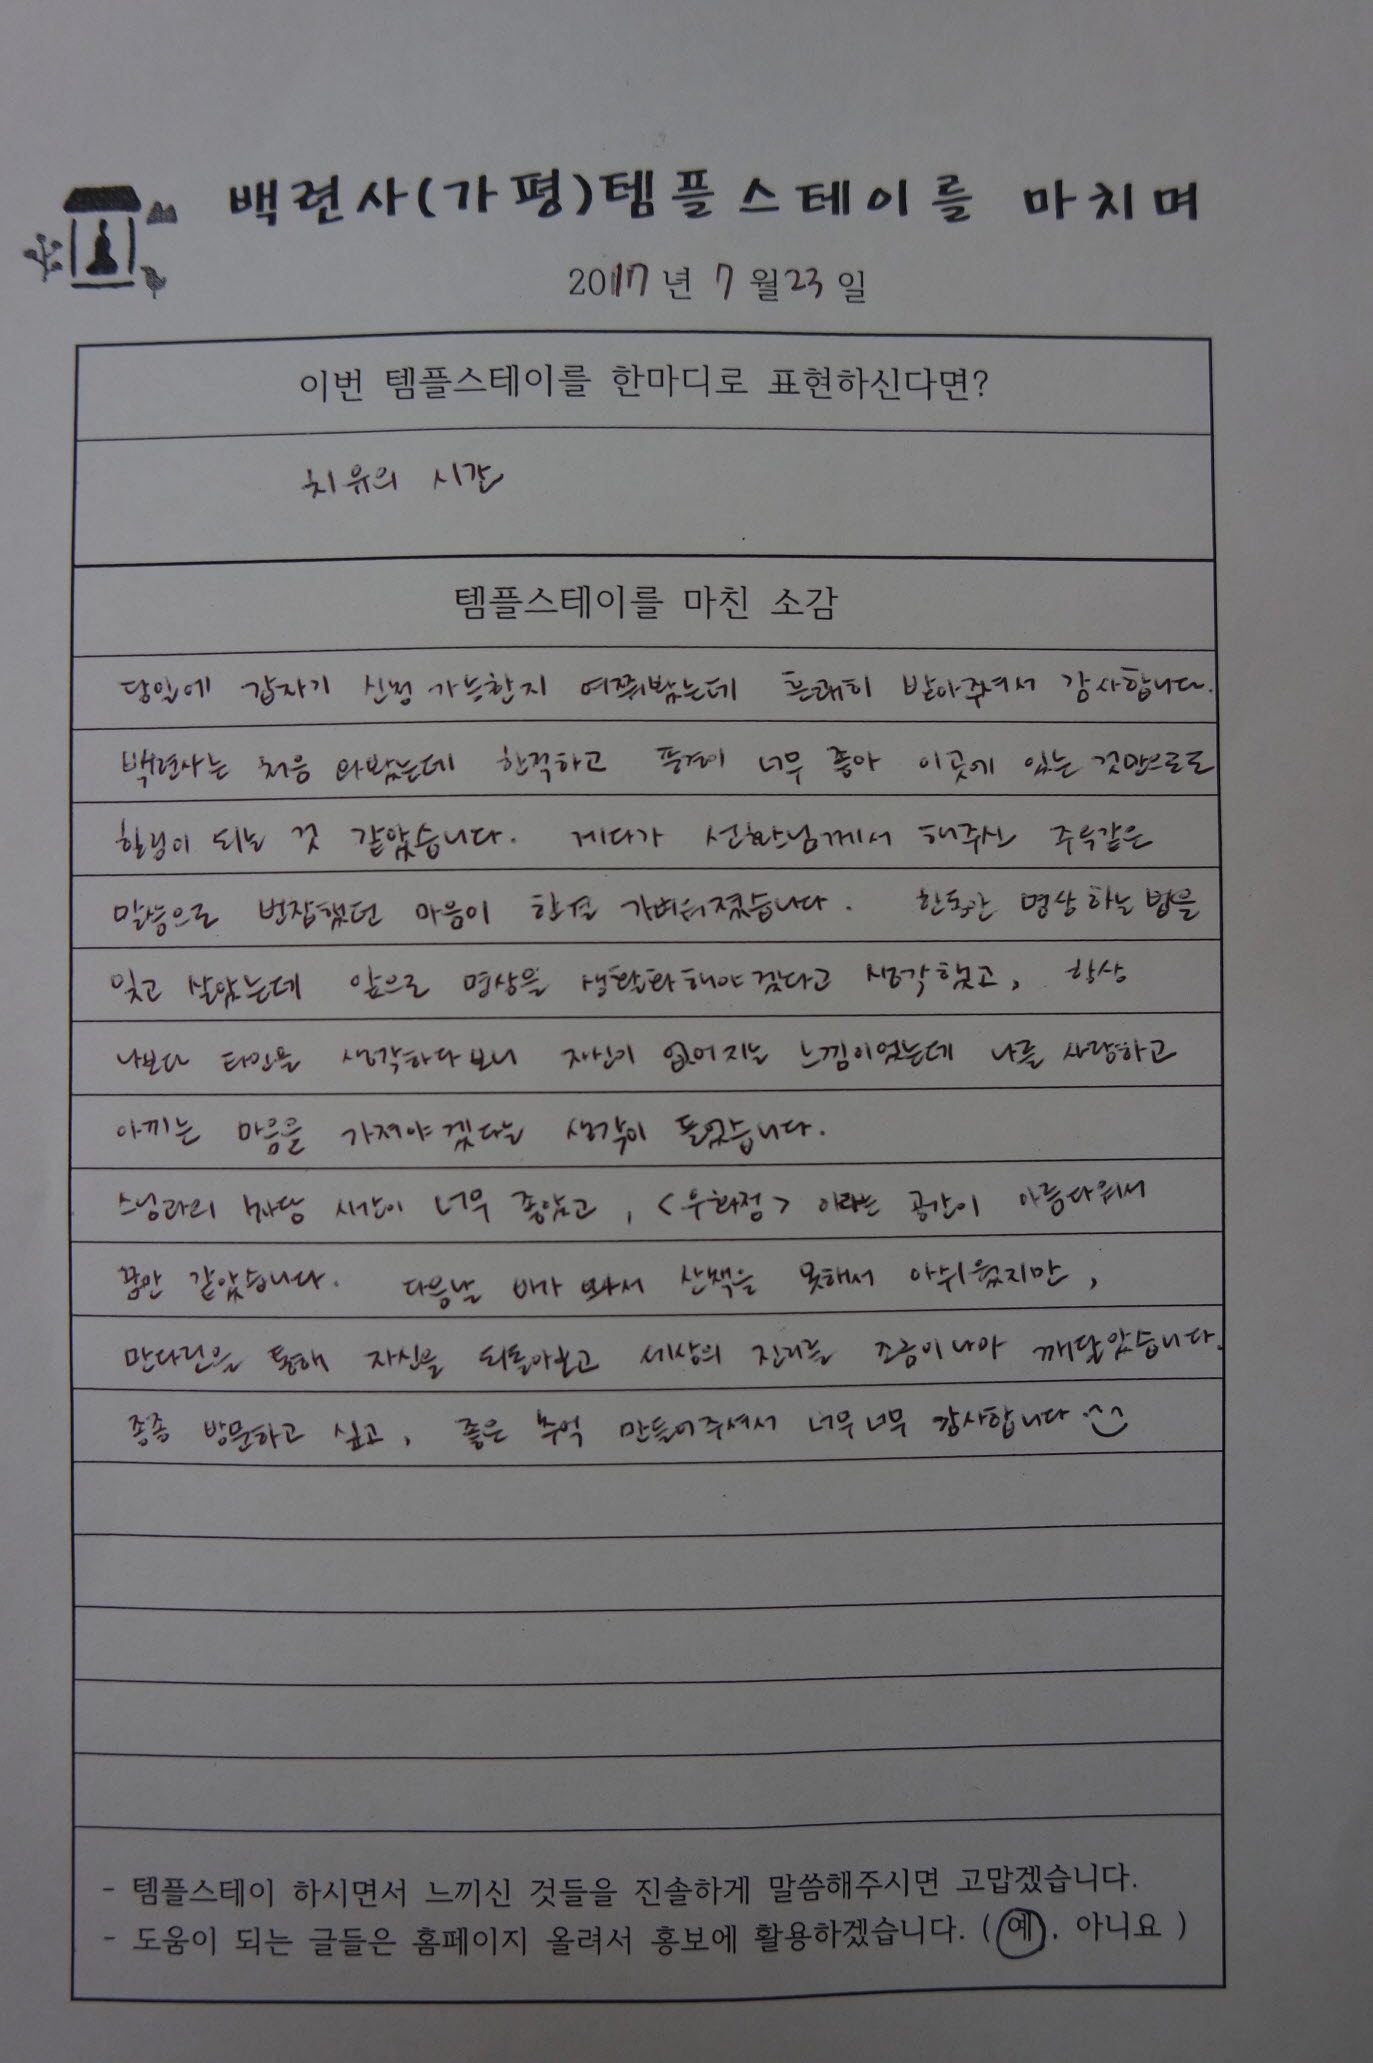 백련사(가평)템플스테이를 마치며
2017년 7월23일
이번 템플스테이를 한마디로 표현하신다면?
치유의 시간
템플스테이를 마친 소감
당일에 갑자기 신청 가능한지 여쭤봤는데 흔쾌히 받아주셔서 감사합니다.
백련사는 처음 와봤는데 한적하고 풍경이 너무 좋아 이곳에 있는 것만으로도
힐링이 되는 것 같았습니다. 게다가 선화스님께서 해주신 주옥같은
말씀으로 번잡했던 마음이 한결 가벼워졌습니다. 한동안 명상하는 법을
잊고 살았는데 앞으로 명상을 생활화해야겠다고 생각했고, 항상
나보다 타인을 생각하다보니 자신이 없어지는 느낌이었는데 나를 사랑하고
아끼는 마음을 가져야겠다는 생각이 들었습니다.
스님과의 차담 시간이 너무 좋았고, <우화정> 이라는 공간이 아름다워서
꿈만 같았습니다. 다음날 비가 와서 산책을 못해서 아쉬웠지만,
만다린을 통해 자신을 되돌아보고 세상의 진리를 조금이나마 깨달았습니다.
종종 방문하고 싶고, 좋은 추억 만들어주셔서 너무너무 감사합니다
- 템플스테이 하시면서 느끼신 것들을 진솔하게 말씀해주시면 고맙겠습니다.
- 도움이 되는 글들은 홈페이지 올려서 홍보에 활용하겠습니다. ( 예 , 아니요 )